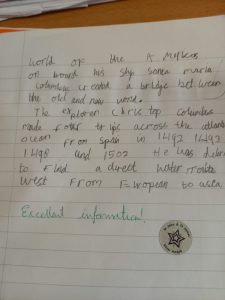 world of the A
on board his ship santa maria
columbus created a bridge between
the old and new world.
The explorer Chris top columbus
made four trips across the atlantic
ocean From Spain in 1492 1492
1498 und 1502 He was
to Find a direct water route
West From European to asia
Excellent information!